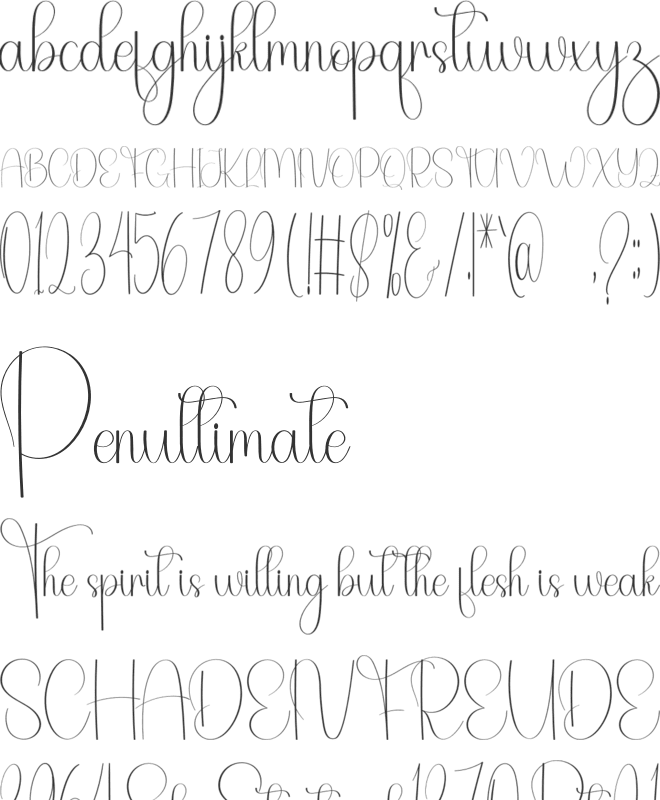 abcdefghijklmnopqrstuvwxyz
ABCDEFGHIJKLMNOPQRSTUVWXYZ
0123456789(!#$%&/.|*`@ ,?:;)
Penultimate
The spirit is willing but the flesh is weak
SCHADENFREUDE